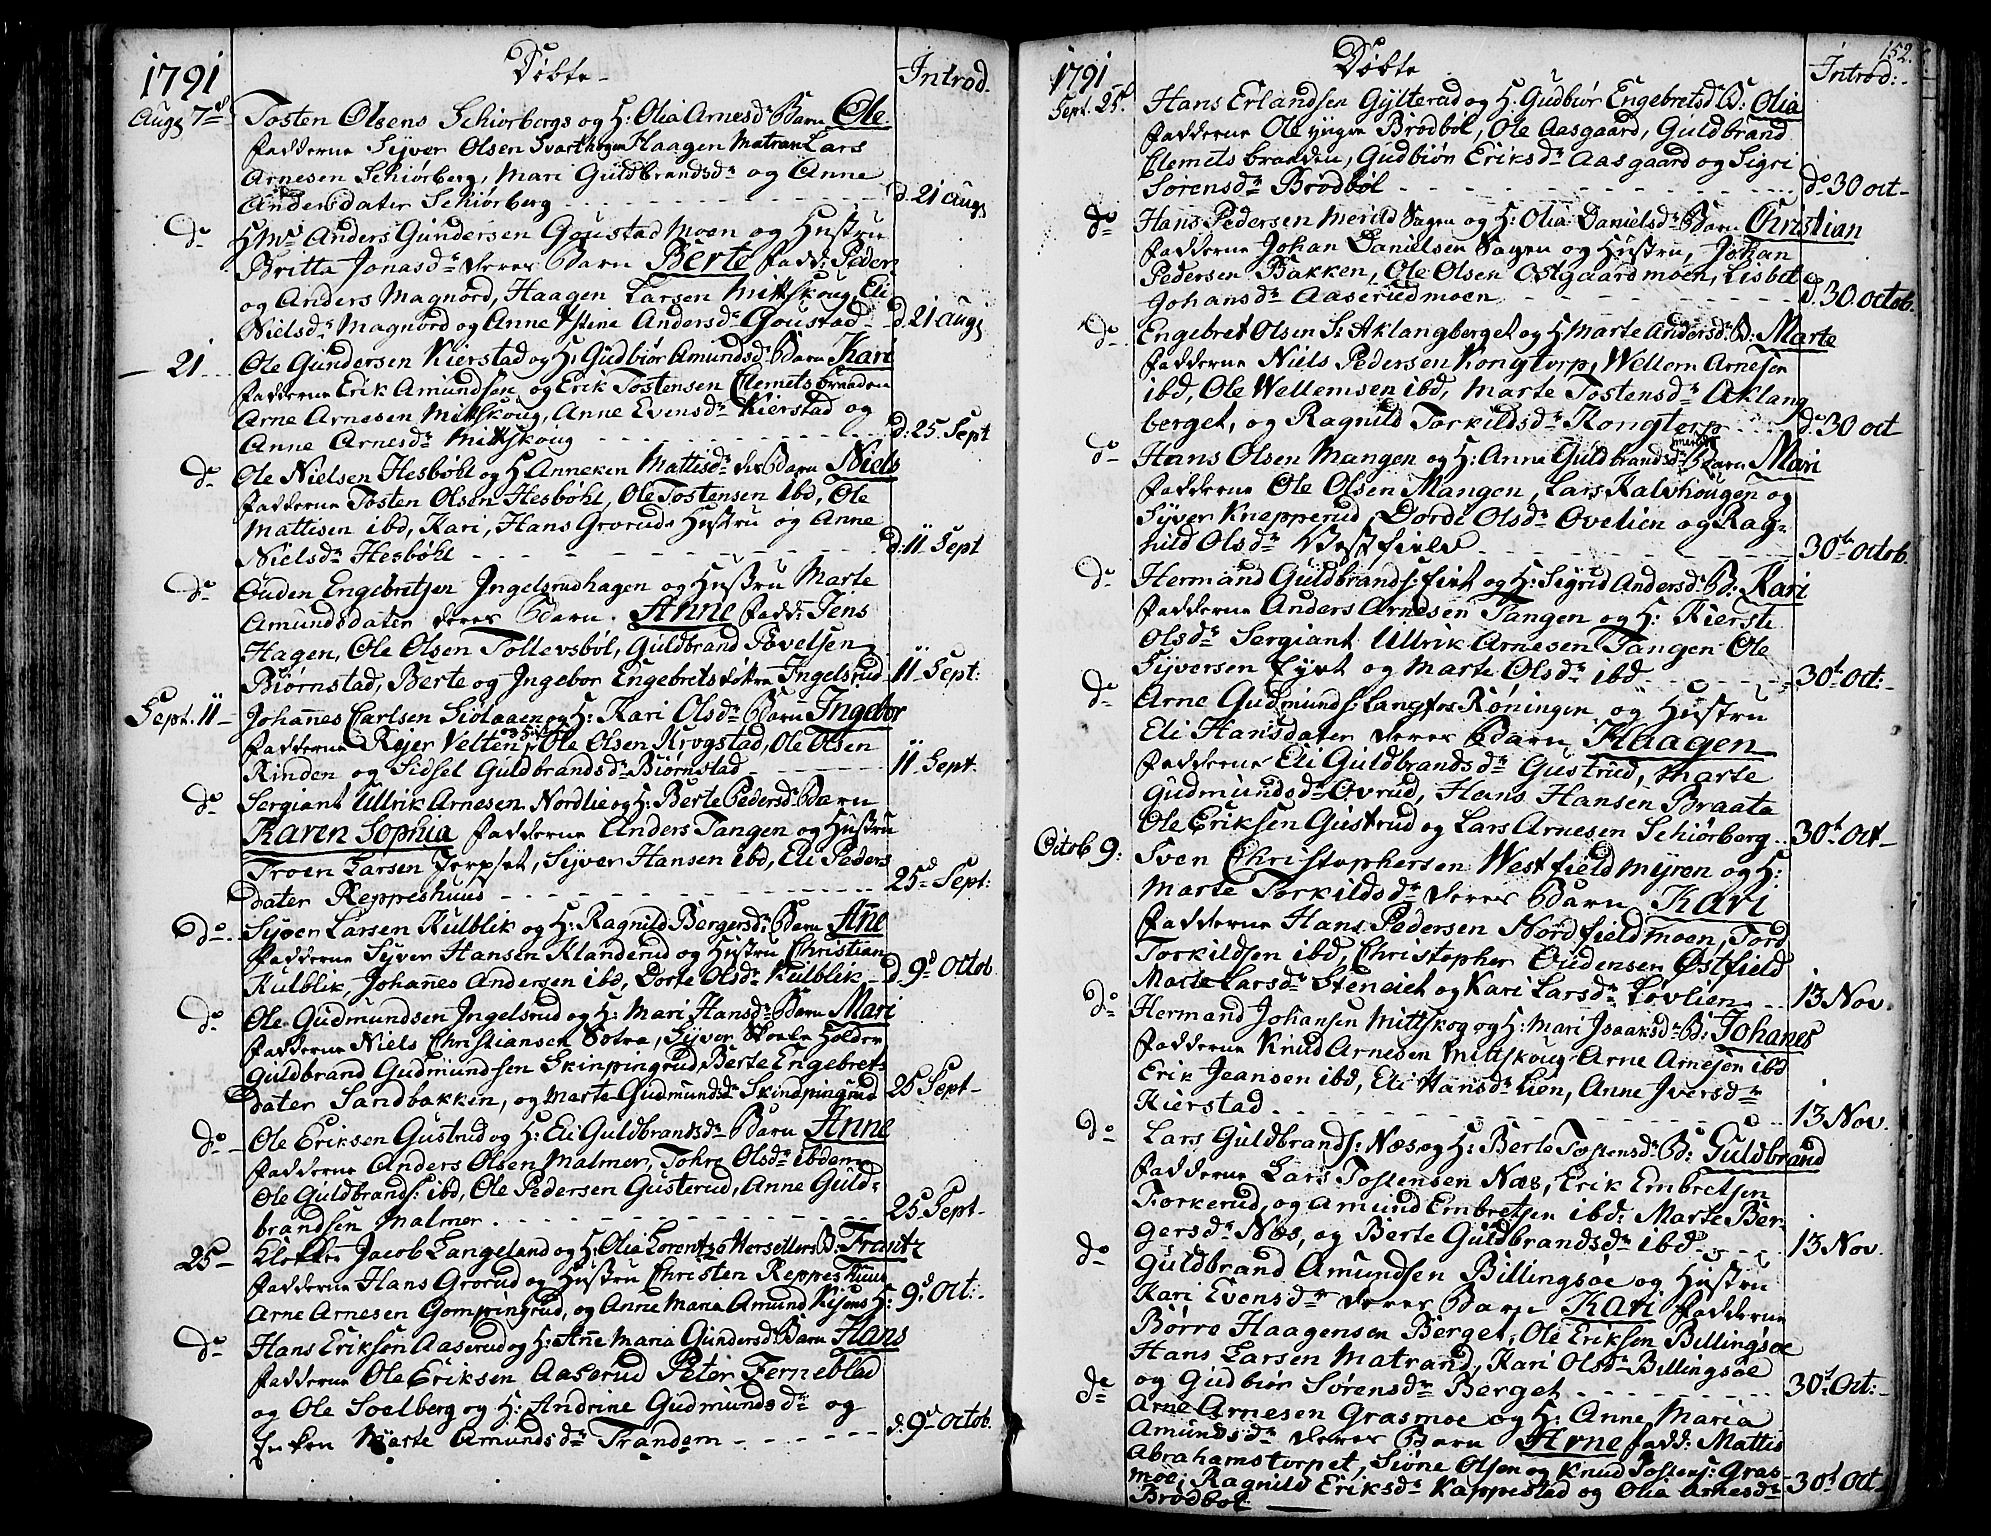 1791 Döbte Introd.
Augs 7de Tosten Olsens Schiörbergs og H: Olia Arnesdr Barn Ole
Fadderne Syver Olsen Svarthagen Haagen Matran Lars
Arnesen Schiørberg, Mari Guldbrandsdr og Anne
Andersdater Schiørberg d. 21 augs
do Hr Ms Anders Gundersen Goustad Moen og Hustru
Britta Jonasdr deres Barn Berte Fadd: Peder
og Anders Magnord, Haagen Larsen Mittskoug, Eli
Nielsdr Magnord og Anne Stine Andersdr Goustad d. 21 augs
21 Ole Gundersen Kierstad og H: Gudbiør Amundsdr Barn Kari
Fadderne Erik Amundsen og Erik Tostensen Clemetsbraaden
Arne Arnesen Mittskoug, Anne Evensdr Kierstad og
Anne Arnesdr Mittskoug d: 25 Sept
do Ole Nielsen Hesbøhl og H Anneken Mattisdr der Barn Niels
Fadderne Tosten Olsen Hesbøhl, Ole Tostensen ibd, Ole
Mattisen ibd, Kari, Hans Groruds Hustru og Anne
Nielsdr Hesbøhl d: 11 Sept
do Ouden Engebretsen Ingelsrudhagen og Hustru Marte
Amundsdater deres Barn. Anne Fadd: Jens
Hagen, Ole Olsen Tollevsböl, Guldbrand Povelsen
Biørnstad, Berte og Ingebor Engebretsdøtre Ingelsrud 11 Sept:
Sept. 11 Johannes Carlsen Siölaaen og H: Kari Olsdr Barn Ingebor
Fadderne Rejer Velten, Ole Olsen Krogstad, Ole Olsen
Rinden og Sidsel Guldbrandsdr Biørnstad 11 Sept.
do Sergiant Ullrik Arnesen Nordlie og H: Berte Pedersdr Barn
Karen Sophia Fadderne Anders Tangen og Hustru
Troen Larsen Jerpset, Syver Hansen ibd, Eli Peders
dater Reppeshuus 25d Sept:
do Syver Larsen Kulblik og H: Ragnild Bergersdr Barn Ane
Fadderne Syver Hansen Klanderud og Hustru Christian
Kulblik, Johannes Andersen ibd, Dorte Olsdr Kulblik d. 9d Octob
do Ole Gudmundsen Ingelsrud og H: Mari Hansdr Barn Mari
Fadderne Niels Christiansen Sotra, Syver Skoleholder
Guldbrand Gudmundsen Skinpingrud, Berte Engebrets
dater Sandbakken, og Marte Gudmundsdr Skindpingrud 25 Sept
do Ole Eriksen Gustrud og H: Eli Guldbrandsdr Barn Anne
Fadderne Anders Olsen Malmer, Tohre Olsdr ibdem
Ole Guldbrands: ibd, Ole Pedersen Gusterud, Anne Guld-
brandsen Malmer 25 Sept
25 Klokker Jacob Langeland og H: Olia Lorentzo Hersetters B: Frantz
Fadderne Hans Grorud og Hustru Christen Reppeshuus
Arne Arnesen Gompingrud, og Anne Maria Amund Kisens H: 9d Oct:
do Hans Eriksøn Aaserud og H: Ane Maria Gundersdr Barn Hans
Fadderne Ole Eriksen Aaserud Peter Ferneblad
og Ole Soelberg og H: Andrine Gudmundsdr og
Enken Marte Amundsdr Trandem d. 9d Octob.
152.
1791 Döbte Introd:
Sept. 25d Hans Erlandsen Gylterud og H: Gudbiør Engebretsd B: Olia
Fadderne Ole yngre Brodböl, Ole Aasgaard, Guldbrand
Clemetsbraaden, Gudbiøn Eriksdr Aasgaard og Sigri
Sørensdr Brødböl do 30 oct
do Hans Pedersen Merild Sagen og H: Olia Danielsdr Barn Christian
Fadderne Johan Danielsen Sagen og Hustru, Johan
Pedersen Bakken, Ole Olsen Ostgaardmoen, Lisbet
Johansdr Aaserudmoen d. 30 octob.
do Engebret Olsen S: Aklangberget og H Marte Andersdr B: Marte
Fadderne Niels Pedersen Kongtorp, Wellom Arnesen
ibd, Ole Wellemsen ibd, Marte Tostensdr Aklang
berget, og Ragnild Torkildsdr Kongtorp do 30 oct
do Hans Olsen Mangen og H: Anne Guldbrandsdr Barn Mari
Fadderne Ole Olsen Mangen, Lars Kalvhougen og
Syver Knepperud, Dordi Olsdr Ovelien og Rag-
nild Olsdr Vestfield 30te Octob.
do Hermand Guldbrands: Eiet og H: Sigrid Andersdr B: Kari
Fadderne Anders Arnesen Tangen og H: Kierste
Olsdr Sergiant Ullrik Arnesen Tangen Ole
Syversen Eyet og Marte Olsdr ibd 30t Oct:
do Arne Gudmunds: Langfos Röningen og Hustru
Eli Hansdater deres Barn Haagen
Fadderne Eli Guldbrandsdr Gustrud, Marte
Gudmundsdr Ovrud, Hans Hansen Braata
Ole Eriksen Gustrud og Lars Arnesen Schiørberg 30t Oct
Octob 9: Sven Christophersen Westfieldmyren og H:
Marte Torkildsdr deres Barn Kari
Fadderne Hans Pedersen Nordfieldmoen, Tord
Torkildsen ibd, Christopher Oudensen Østfield
Marte Larsdr Steneiet og Kari Larsdr Lövlien 13 Nov.
do Hermand Johansen Mittskog og H: Mari Isaaksdr B: Johanes
Fadderne Knud Arnesen Mittskoug Arne Arnesen ibd
Erik Jeansen ibd, Eli Hansdr Lien, Anne Iversdr
Kierstad 13 Nov.
do Lars Guldbrands: Næs og H: Berte Tostensdr B: Guldbrand
Fadderne Lars Tostensen Næs, Erik Embretsen
Torkerud, og Amund Embretsen ibd: Marte Ber-
gersdr Næs, og Berte Guldbrandsdr ibd 13 Nov.
do Guldbrand Amundsen Billingsøe og Hustru
Kari Evensdr deres Barn Kari Fadderne
Børre Haagensen Berget, Ole Eriksen Billingsøe
Hans Larsen Matrand, Kari Olsdr Billingsøe
og Gudbiør Sørensdr Berget 30t Oct:
do Arne Arnesen Grasmoe og H: Anne Maria
Amundsdr deres Barn Arne Fadd: Mattis
Abrahamstorpet, Siøne Olsen og Knud Tostens: Gras-
moe, Ragnild Eriksdr Kappestad og Olia Arnesdr 30t Oct
Brodböl